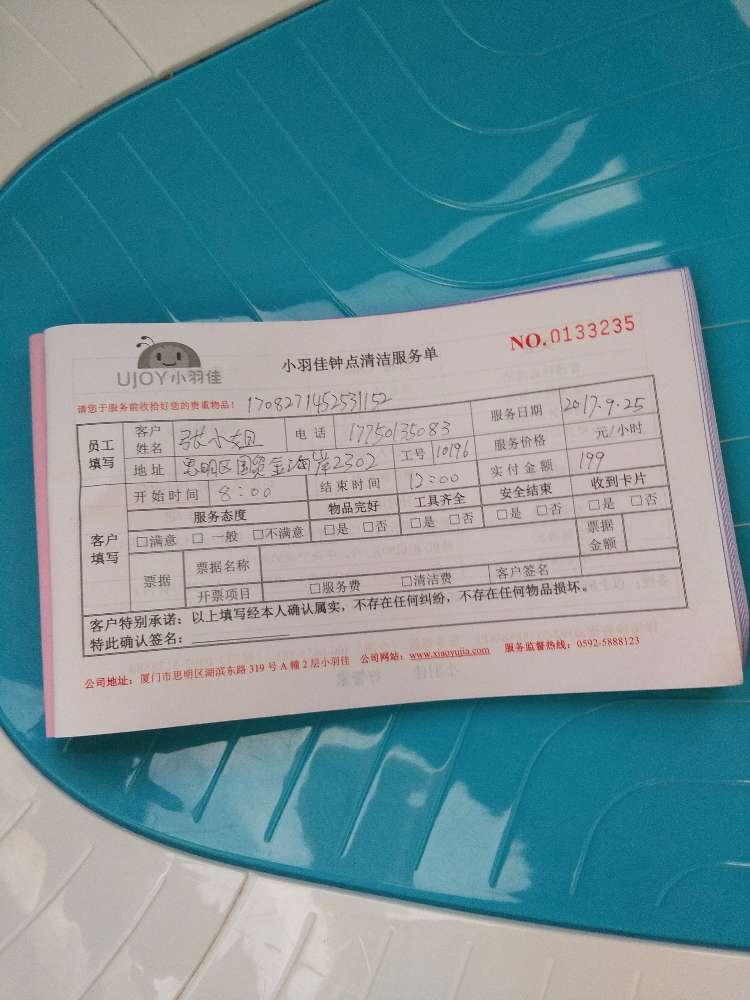 UJOY小羽佳
小羽佳钟点清洁服务单
NO.0133235
请您于服务前收拾好您的贵重物品! 1708271452531152
员工填写 客户姓名 张小姐 电话 17750135083 服务日期 2017.9.25
地址 思明区国贸金海岸2302 工号 10196 服务价格 元/小时
开始时间 8:00 结束时间 12:00 实付金额 199
客户填写 服务态度 物品完好 工具齐全 安全结束 收到卡片
□满意 □一般 □不满意 □是 □否 □是 □否 □是 □否 □是 □否
票据 票据名称 票据金额
开票项目 □服务费 □清洁费 客户签名
客户特别承诺:以上填写经本人确认属实,不存在任何纠纷,不存在任何物品损坏。
特此确认签名:
公司地址:厦门市思明区湖滨东路319号A幢2层小羽佳 公司网站:www.xiaoyujia.com 服务监督热线:0592-5888123